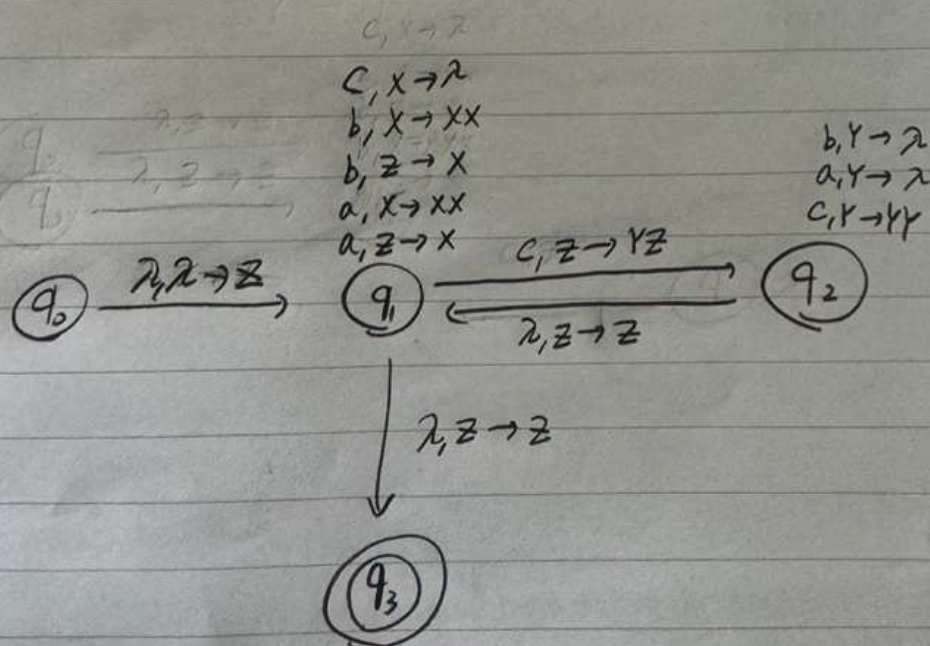 C, X → λ
b, X → XX
b, Z → X
a, X → XX
a, Z → X
b, Y → λ
a, Y → λ
C, Y → YY
q₀
λ, λ → Z
q₁
C, Z → YZ
λ, Z → Z
q₂
λ, Z → Z
q₃